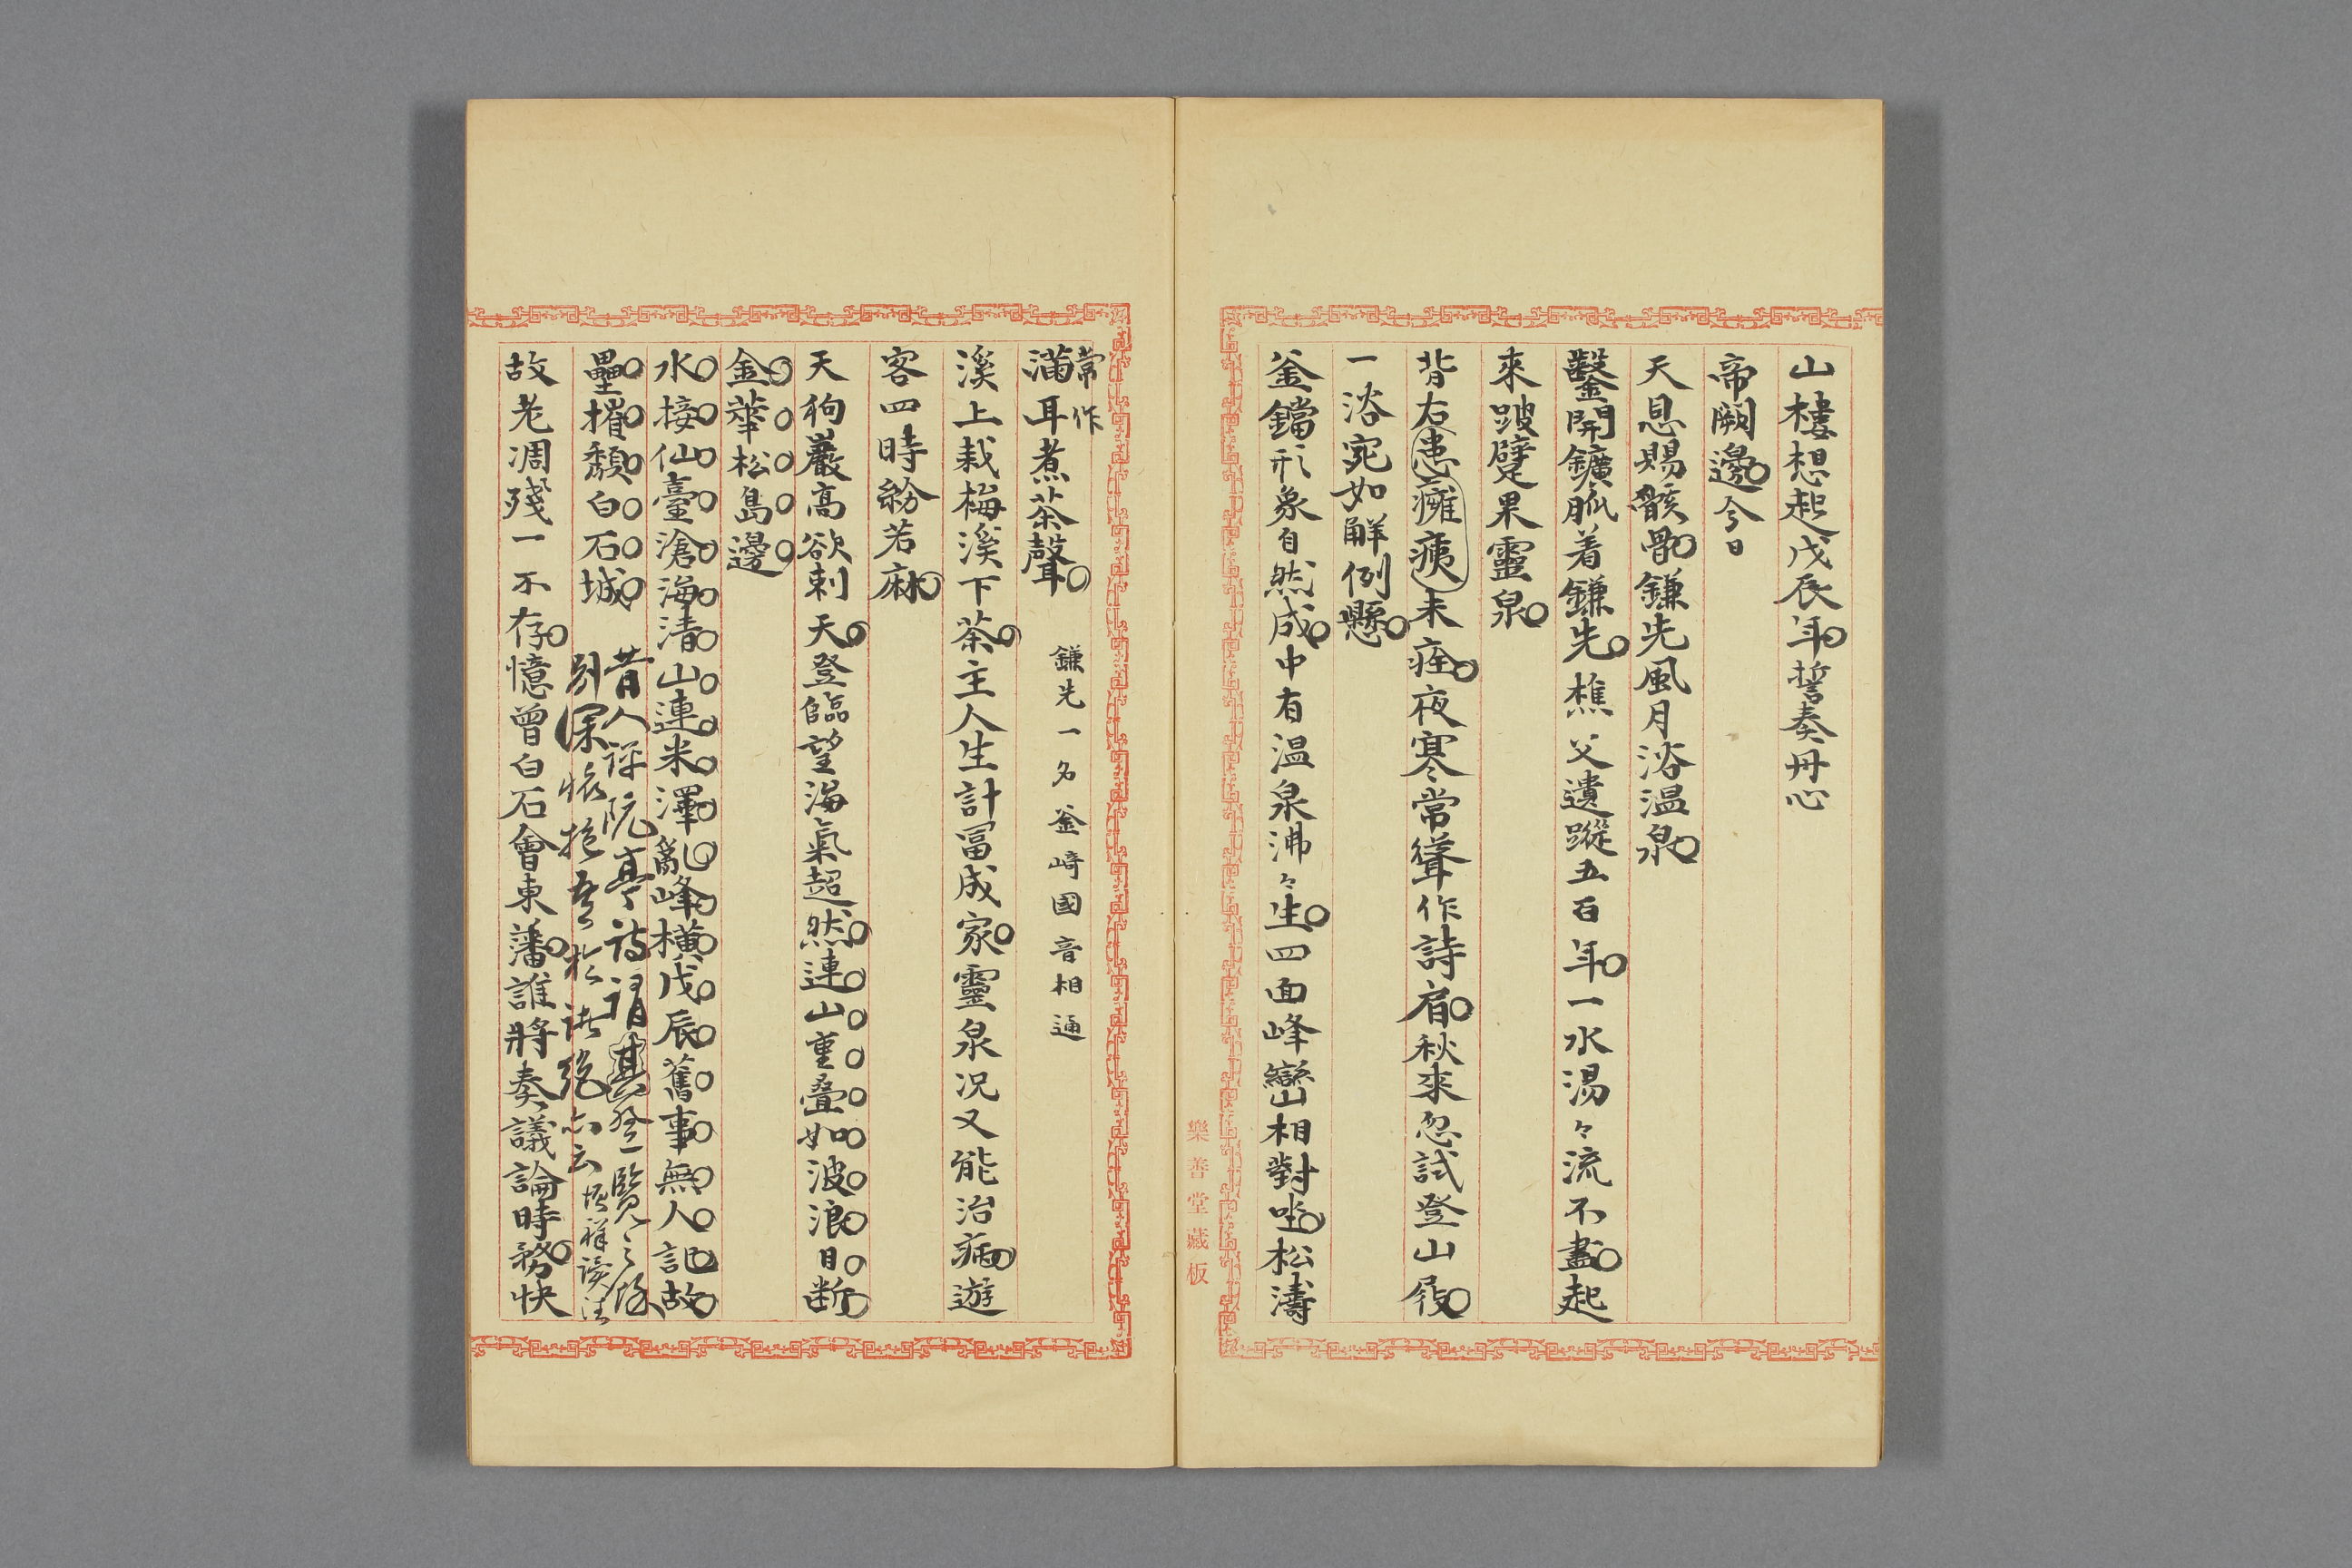 山樓想起戊辰年誓奏丹心
帝闕邊今日
天恩賜骸骨鎌先風月浴温泉
鑿開鑛脈着鎌先樵父遺蹤五百年一水湯々流不盡起
來跛躄果靈泉
背右患癰痍未痊夜寒常聳作詩肩秋來忽試登山屐
一浴宛如解倒懸
釜鐺形象自然成中有温泉沸々生四面峰巒相對坐松濤
樂善堂藏板
常作
滿耳煮茶聲 鎌先一名釜﨑國音相通
溪上栽梅溪下茶主人生計冨成家靈泉况又能治病遊
客四時紛若麻
天狗巖高欲刺天登臨望海氣超然連山重疊如波浪日断
金華松島邊
水接仙臺滄海清山連米澤亂峰橫戊辰舊事無人記故
壘摧頽白石城
昔人評阮亭詩謂其登覽之
別深
故老凋殘一不存憶曾白石會東藩誰將奏議論時務快